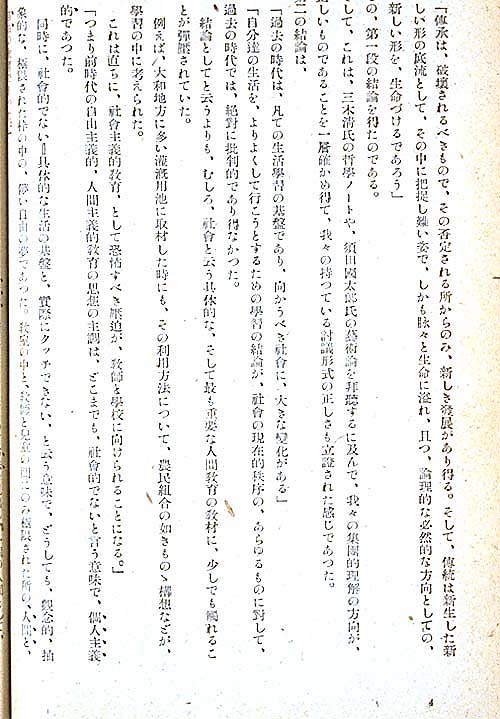 「傳承は、破壞されるべきもので、その否定される所からのみ、新しき發展があり得る。そして、傳統は新生した新
しい形の底流として、その中に把捉し難い姿で、しかも脉々と生命に溢れ、且つ、論理的な必然的な方向としての、
新しい形を、生命づけるであろう」
の、第一段の結論を得たのである。
して、これは、三木淸氏の哲學ノートや、須田國太郎氏の藝術論を拜聽するに及んで、我々の集團的理解の方向が、
しいものであることを一層確かめ得て、我々の持つている討議形式の正しさも立證された感じであつた。
二の結論は、
「過去の時代は、凡ての生活學習の基盤であり、向かうべき社會に、大きな變化がある」
「自分達の生活を、よりよくして行こうとするための學習の結論が、社會の現在的秩序の、あらゆるものに對して、
過去の時代では、絕對に批判的であり得なかつた。
結論としてと云うよりも、むしろ、社會と云う具体的な、そして最も重要な人間敎育の敎材に、少しでも觸れるこ
とが彈壓されていた。
例えば、大和地方に多い灌漑用池に取材した時にも、その利用方法について、農民組合の如きものゝ構想などが、
學習の中に考えられた。
これは直ちに、社會主義的敎育、として恐怖すべき壓迫が、敎師と學校に向けられることになる。」
「つまり前時代の自由主義的、人間主義的敎育の思想の主調は、どこまでも、社會的でないと言う意味で、個人主義
的であつた。
同時に、社會的でない=具体的な生活の基盤と、實際にタッチできない、と云う意味で、どうしても、觀念的、抽
象的な、極限された枠の中の、儚い自由の夢であつた。敎室の中と、敎師と兒童の間にのみ極限された所の、人間と、
4